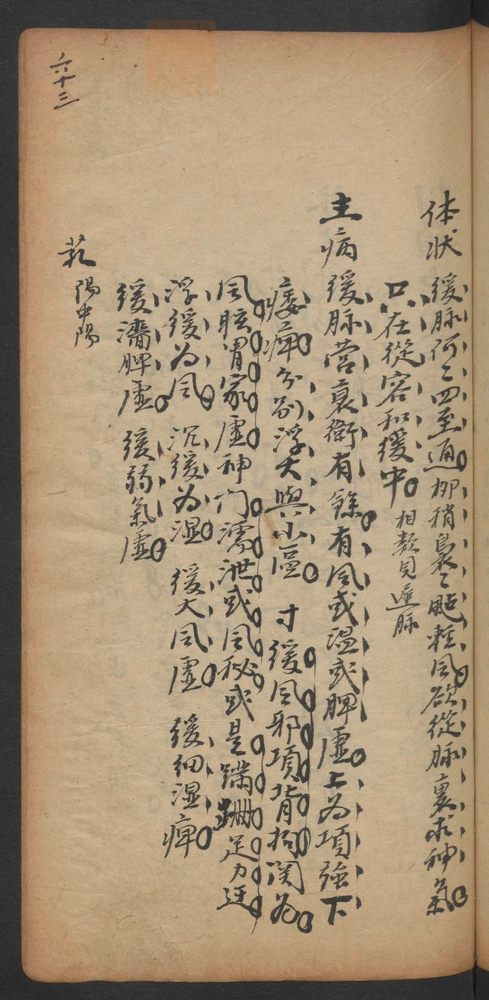 体状緩脉阿阿四至通柳稍裊裊颭輕風欲從脉裏求神氣
只在從容和緩中相類見遲脉
主病緩脉营衰衛有餘有風或温或脾虛上為項強下
痿痺分别浮大與小區寸緩風邪項背拘関為
風眩胃家虛神门濡泄或風秘或是蹣跚足力迂
浮緩為風沉緩為湿緩大風虛緩細湿痺
緩濇脾虛緩弱氣虛
芤陽中陽
六十三